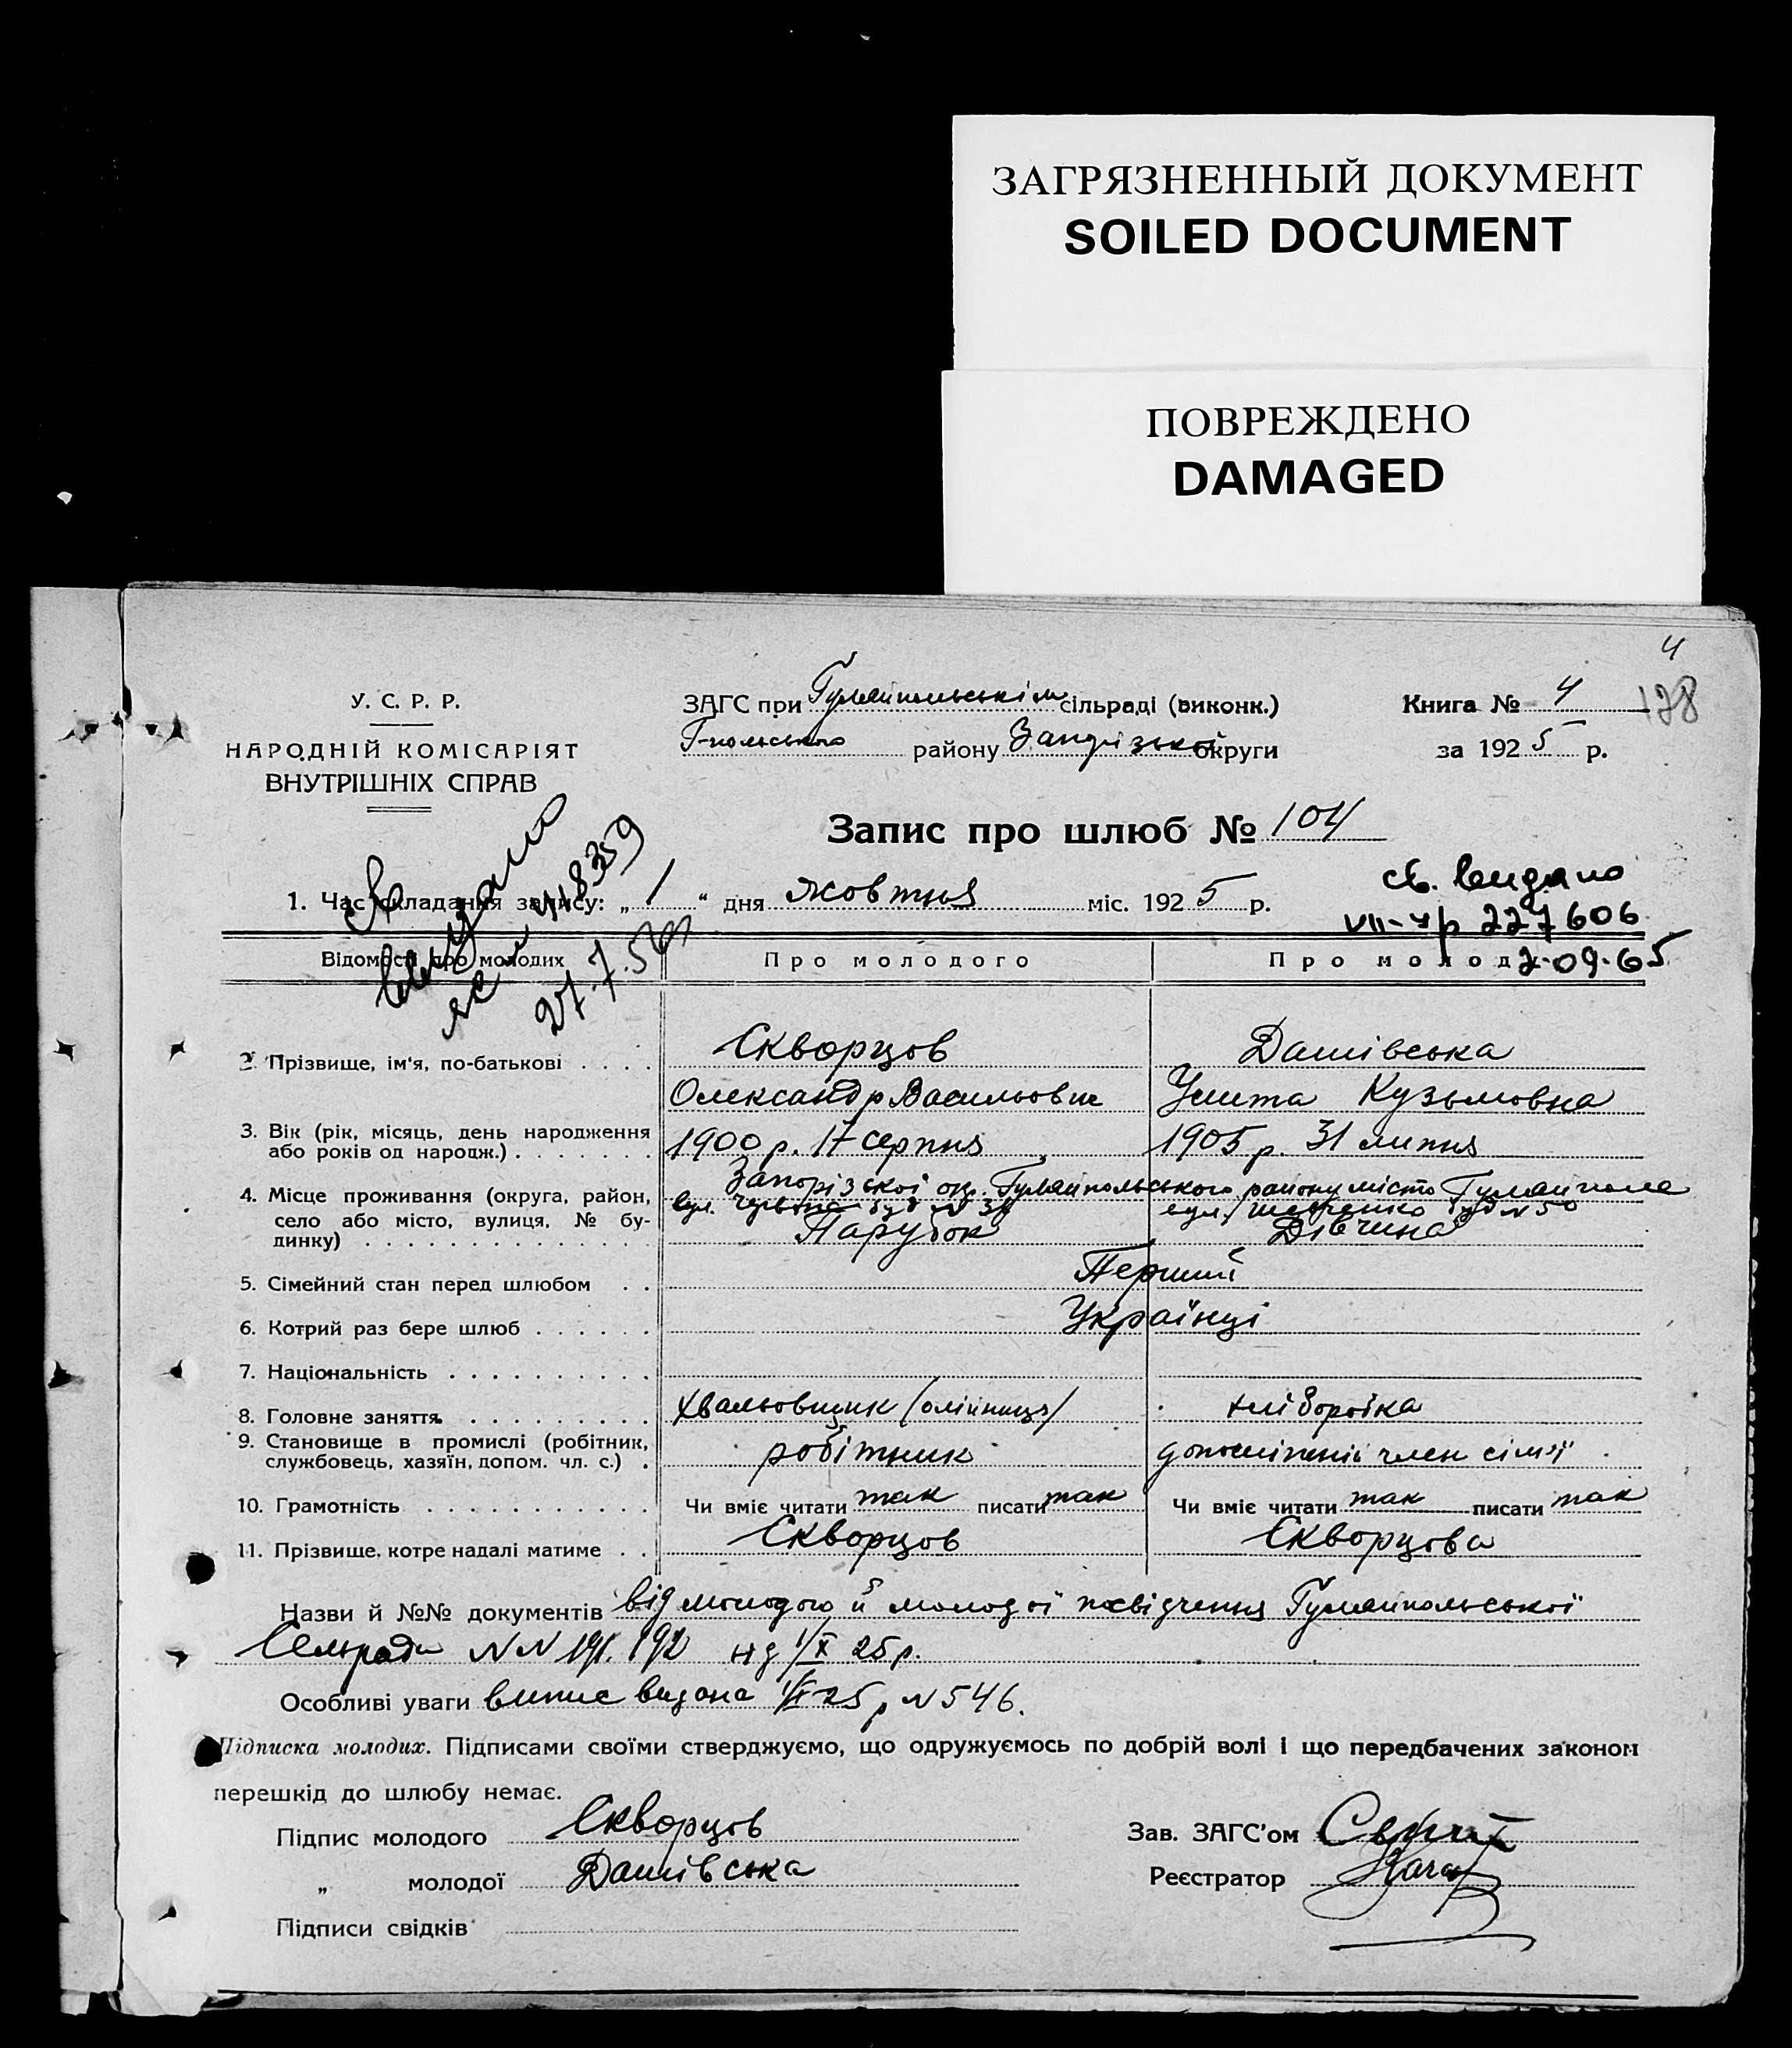 ЗАГРЯЗНЕННЫЙ ДОКУМЕНТ
SOILED DOCUMENT
ПОВРЕЖДЕНО
DAMAGED
4
128
У. С. Р. Р.
НАРОДНІЙ КОМІСАРІЯТ
ВНУТРІШНІХ СПРАВ
ЗАГС при Гуляйпольськім сільраді (виконк.)
Г-польського району Запорізької округи
Книга № 4
за 1925 р.
Запис про шлюб № 104
1. Час складання запису: „1“ дня жовтня міс. 1925 р.
св. видано
VII-ур 227606
2.09.65
св видано
418359
27.7.59
Відомості про молодих Про молодого Про молоду
2. Прізвище, ім'я, по-батькові . . . . Скворцов Дашівська
Олександр Васильович Улита Кузьмовна
3. Вік (рік, місяць, день народження або років од народж.) . . . . . . . 1900 р. 17 серпня 1905 р. 31 липня
4. Місце проживання (округа, район, село або місто, вулиця, № будинку) . . . . . . . . . . . . . . Запорізької ок. Гуляйпольського району місто Гуляйполе
вул. буд № 38 вул. Шевченко буд № 50
Парубок Дівчина
5. Сімейний стан перед шлюбом . . Перший
6. Котрий раз бере шлюб . . . . . . Українці
7. Національність . . . . . . . . . .
8. Головне заняття . . . . . . . . . хвальовщик (олійниця) хліборобка
9. Становище в промислі (робітник, службовець, хазяїн, допом. чл. с.) . робітник член сім'ї
10. Грамотність . . . . . . . . . . . Чи вміє читати так писати так Чи вміє читати так писати так
11. Прізвище, котре надалі матиме . . Скворцов Скворцова
Назви й №№ документів від молодого й молодої посвідчення Гуляйпольської
Сельради NN 191. 192 від 1/X 25 р.
Особливі уваги випис видана 1/X 25 р N 546.
Підписка молодих. Підписами своїми стверджуємо, що одружуємось по добрій волі і що передбачених законом
перешкід до шлюбу немає.
Підпис молодого Скворцов
„ молодої Дашівська
Підписи свідків
Зав. ЗАГС'ом
Реєстратор